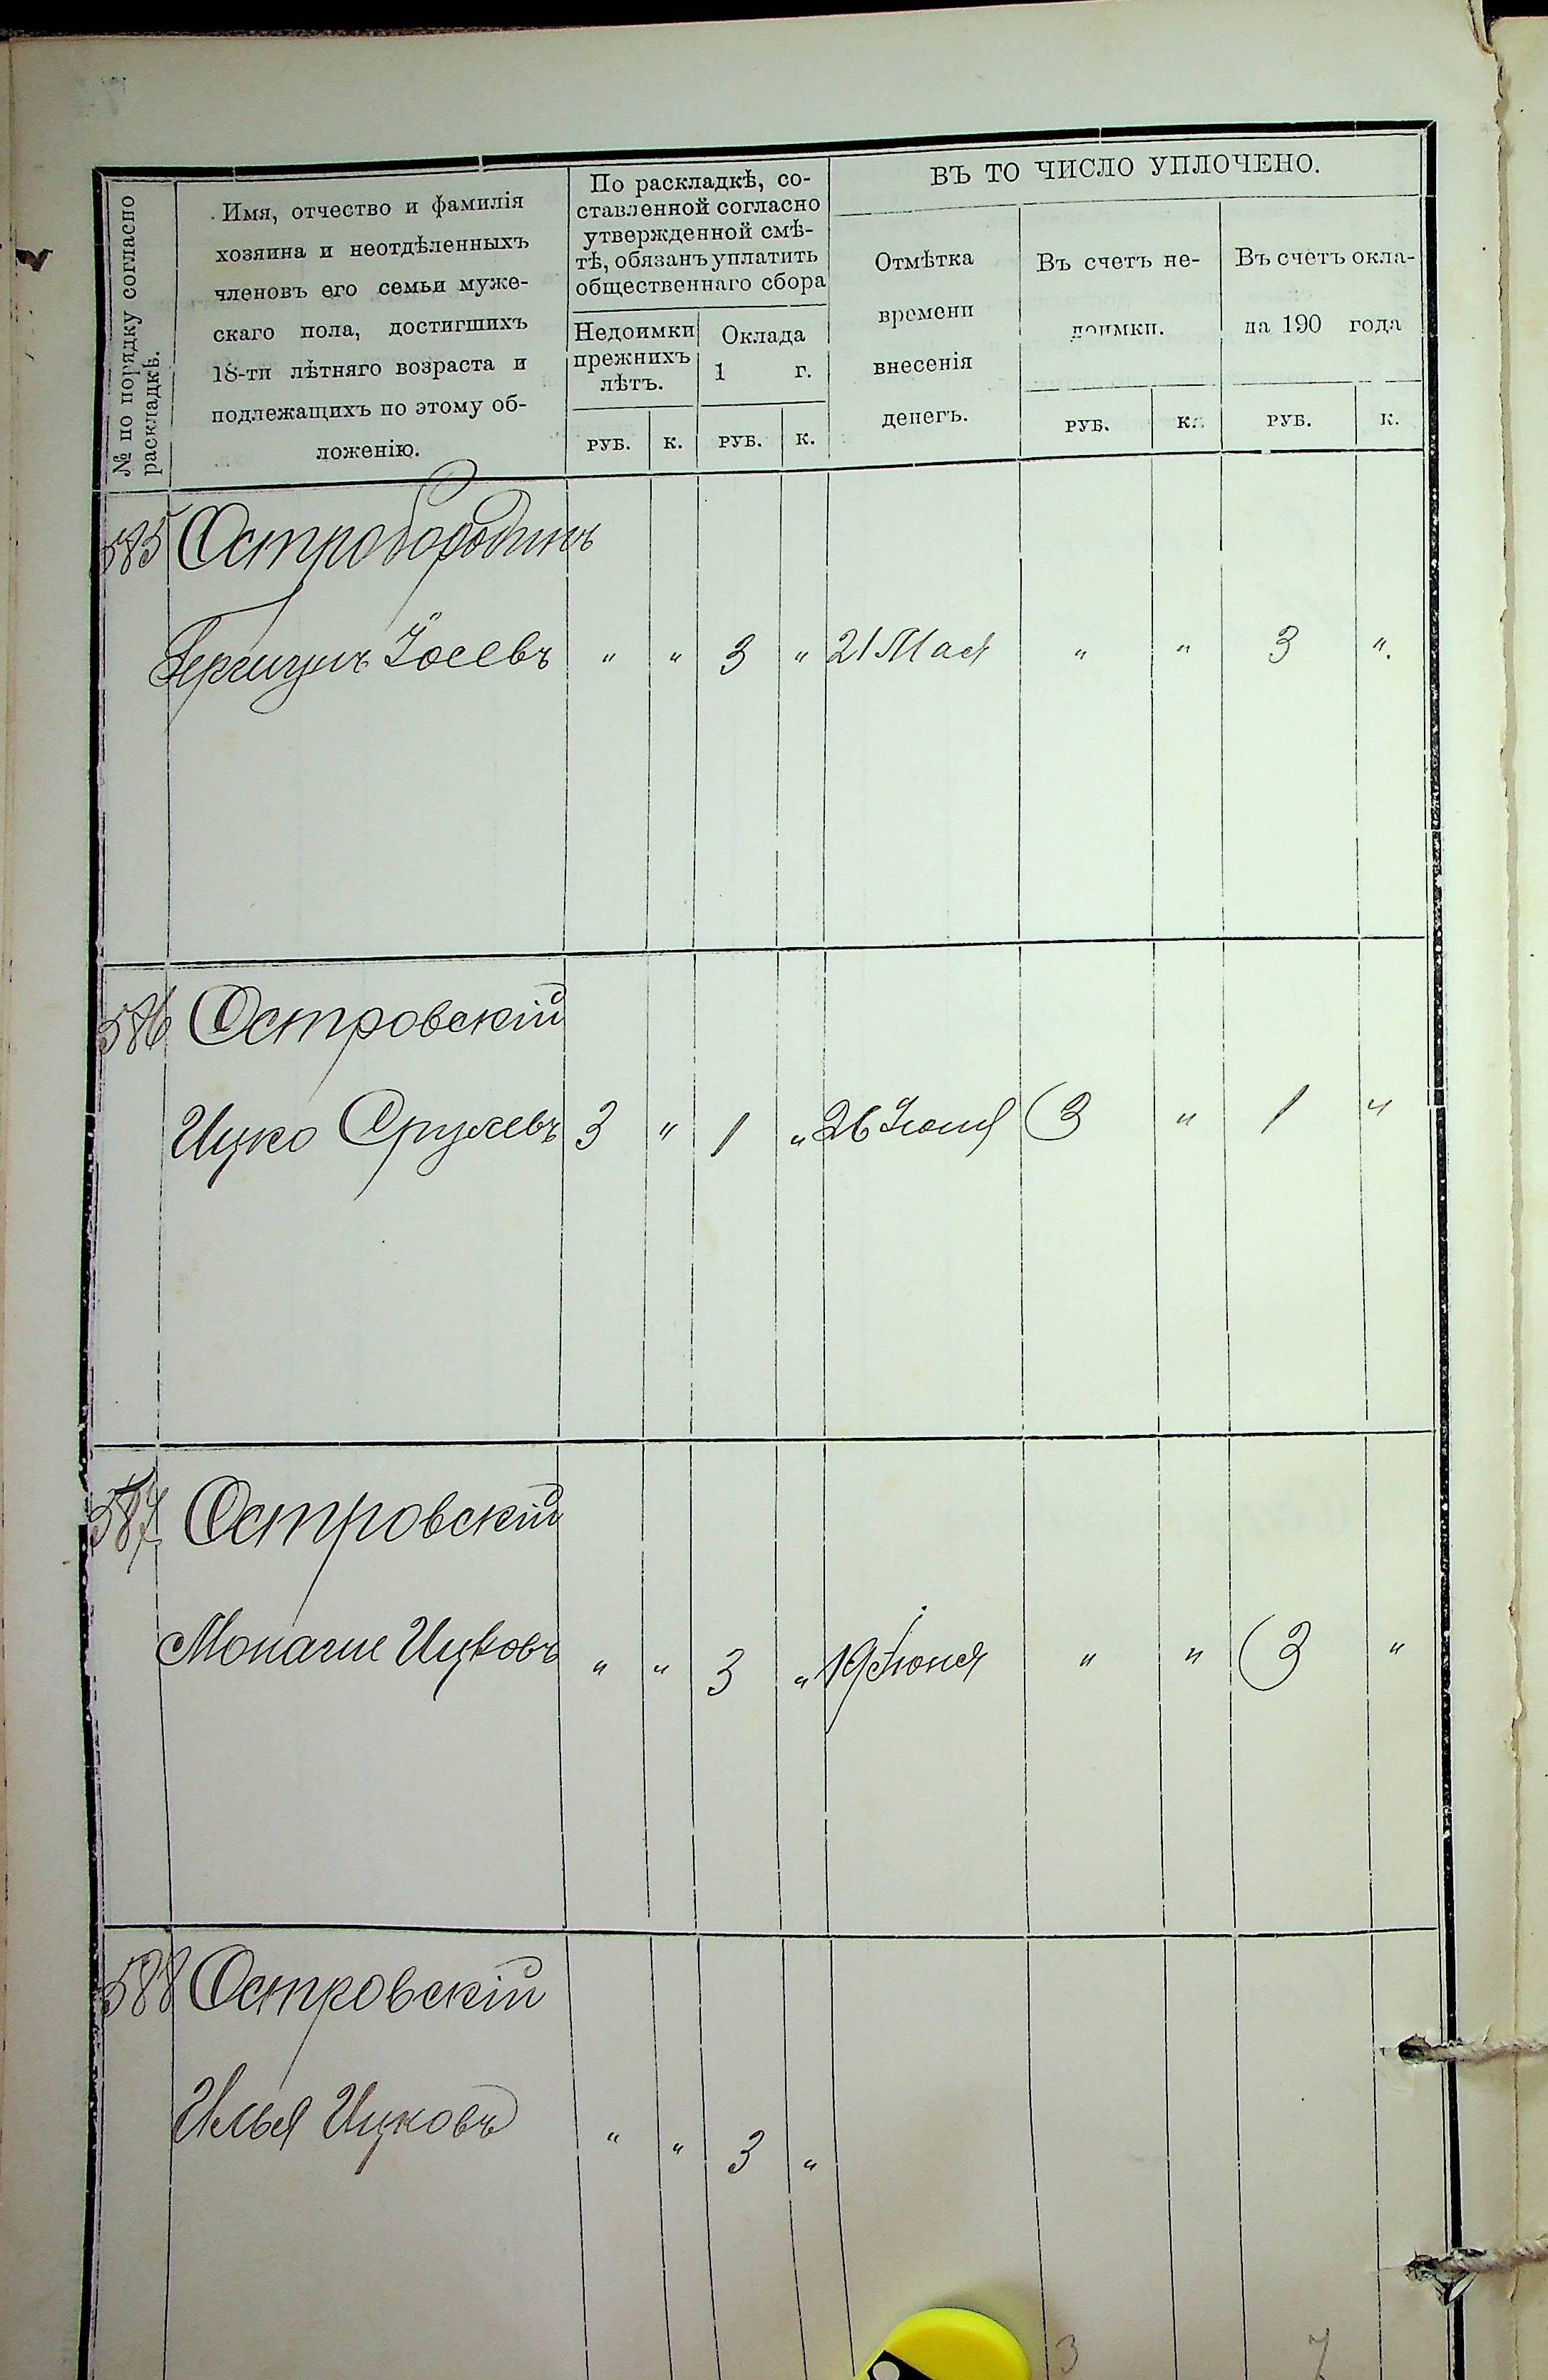 № по порядку согласно
раскладкѣ.
Имя, отчество и фамилія
хозяина и неотдѣленныхъ
членовъ его семьи муже-
скаго пола, достигшихъ
18-ти лѣтняго возраста и
подлежащихъ по этому об-
ложенію.
По раскладкѣ, со-
ставленной согласно
утвержденной смѣ-
тѣ, обязанъ уплатить
общественнаго сбора
Недоимки
прежнихъ
лѣтъ.
Оклада
1 г.
РУБ. К. РУБ. К.
ВЪ ТО ЧИСЛО УПЛОЧЕНО.
Отмѣтка
времени
внесенія
денегъ.
Въ счетъ не-
доимки.
Въ счетъ окла-
да 190 года
РУБ. К. РУБ. К.
585 Остробородинъ
Іосевъ " " 3 " 21 Мая " " 3 ".
586 Островскій
Ицко Срулевъ 3 " 1 " 26 3 " 1 "
587 Островскій
Ицковъ " " 3 " 19 Іюня " " 3 "
588 Островскій
Илья Ицковъ " " 3 "
3 7